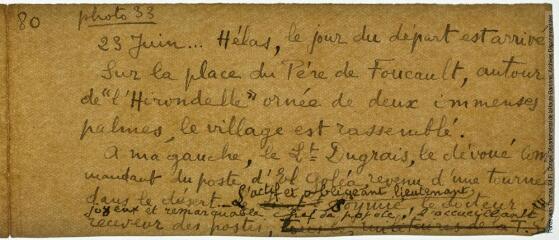 80
photo 33
23 Juin... Hélas, le jour du départ est arrivé
Sur la place du Père de Foucault, autour
de "l'Hirondelle" ornée de deux immenses
palmes, le village est rassemblé.
A ma gauche, le Lt Dugrais, le dévoué com
mandant du poste d'El Goléa revenu d'une tournée
dans le désert. L'actif et obligeant lieutenant
le docteur
joyeux et remarquable chef de popote, l'accueillant
receveur des postes,